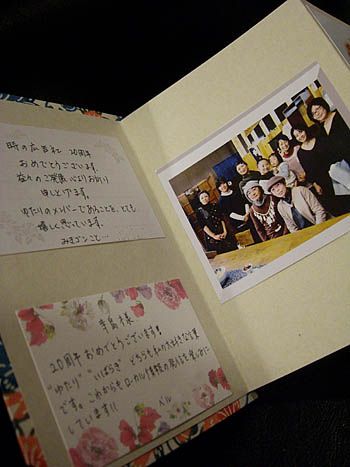 時の広告社 20周年
おめでとうございます。
益々のご発展 心よりお祈り
申し上げます。
ゆたりのメンバーであることを、とても
嬉しく思っています。
寺島様
20周年 おめでとうございます!
"ゆたり" "いばらき" どちらも私の大好きな言葉
です。これからもローカル情報の発信を楽しみに
しています!!
ベル